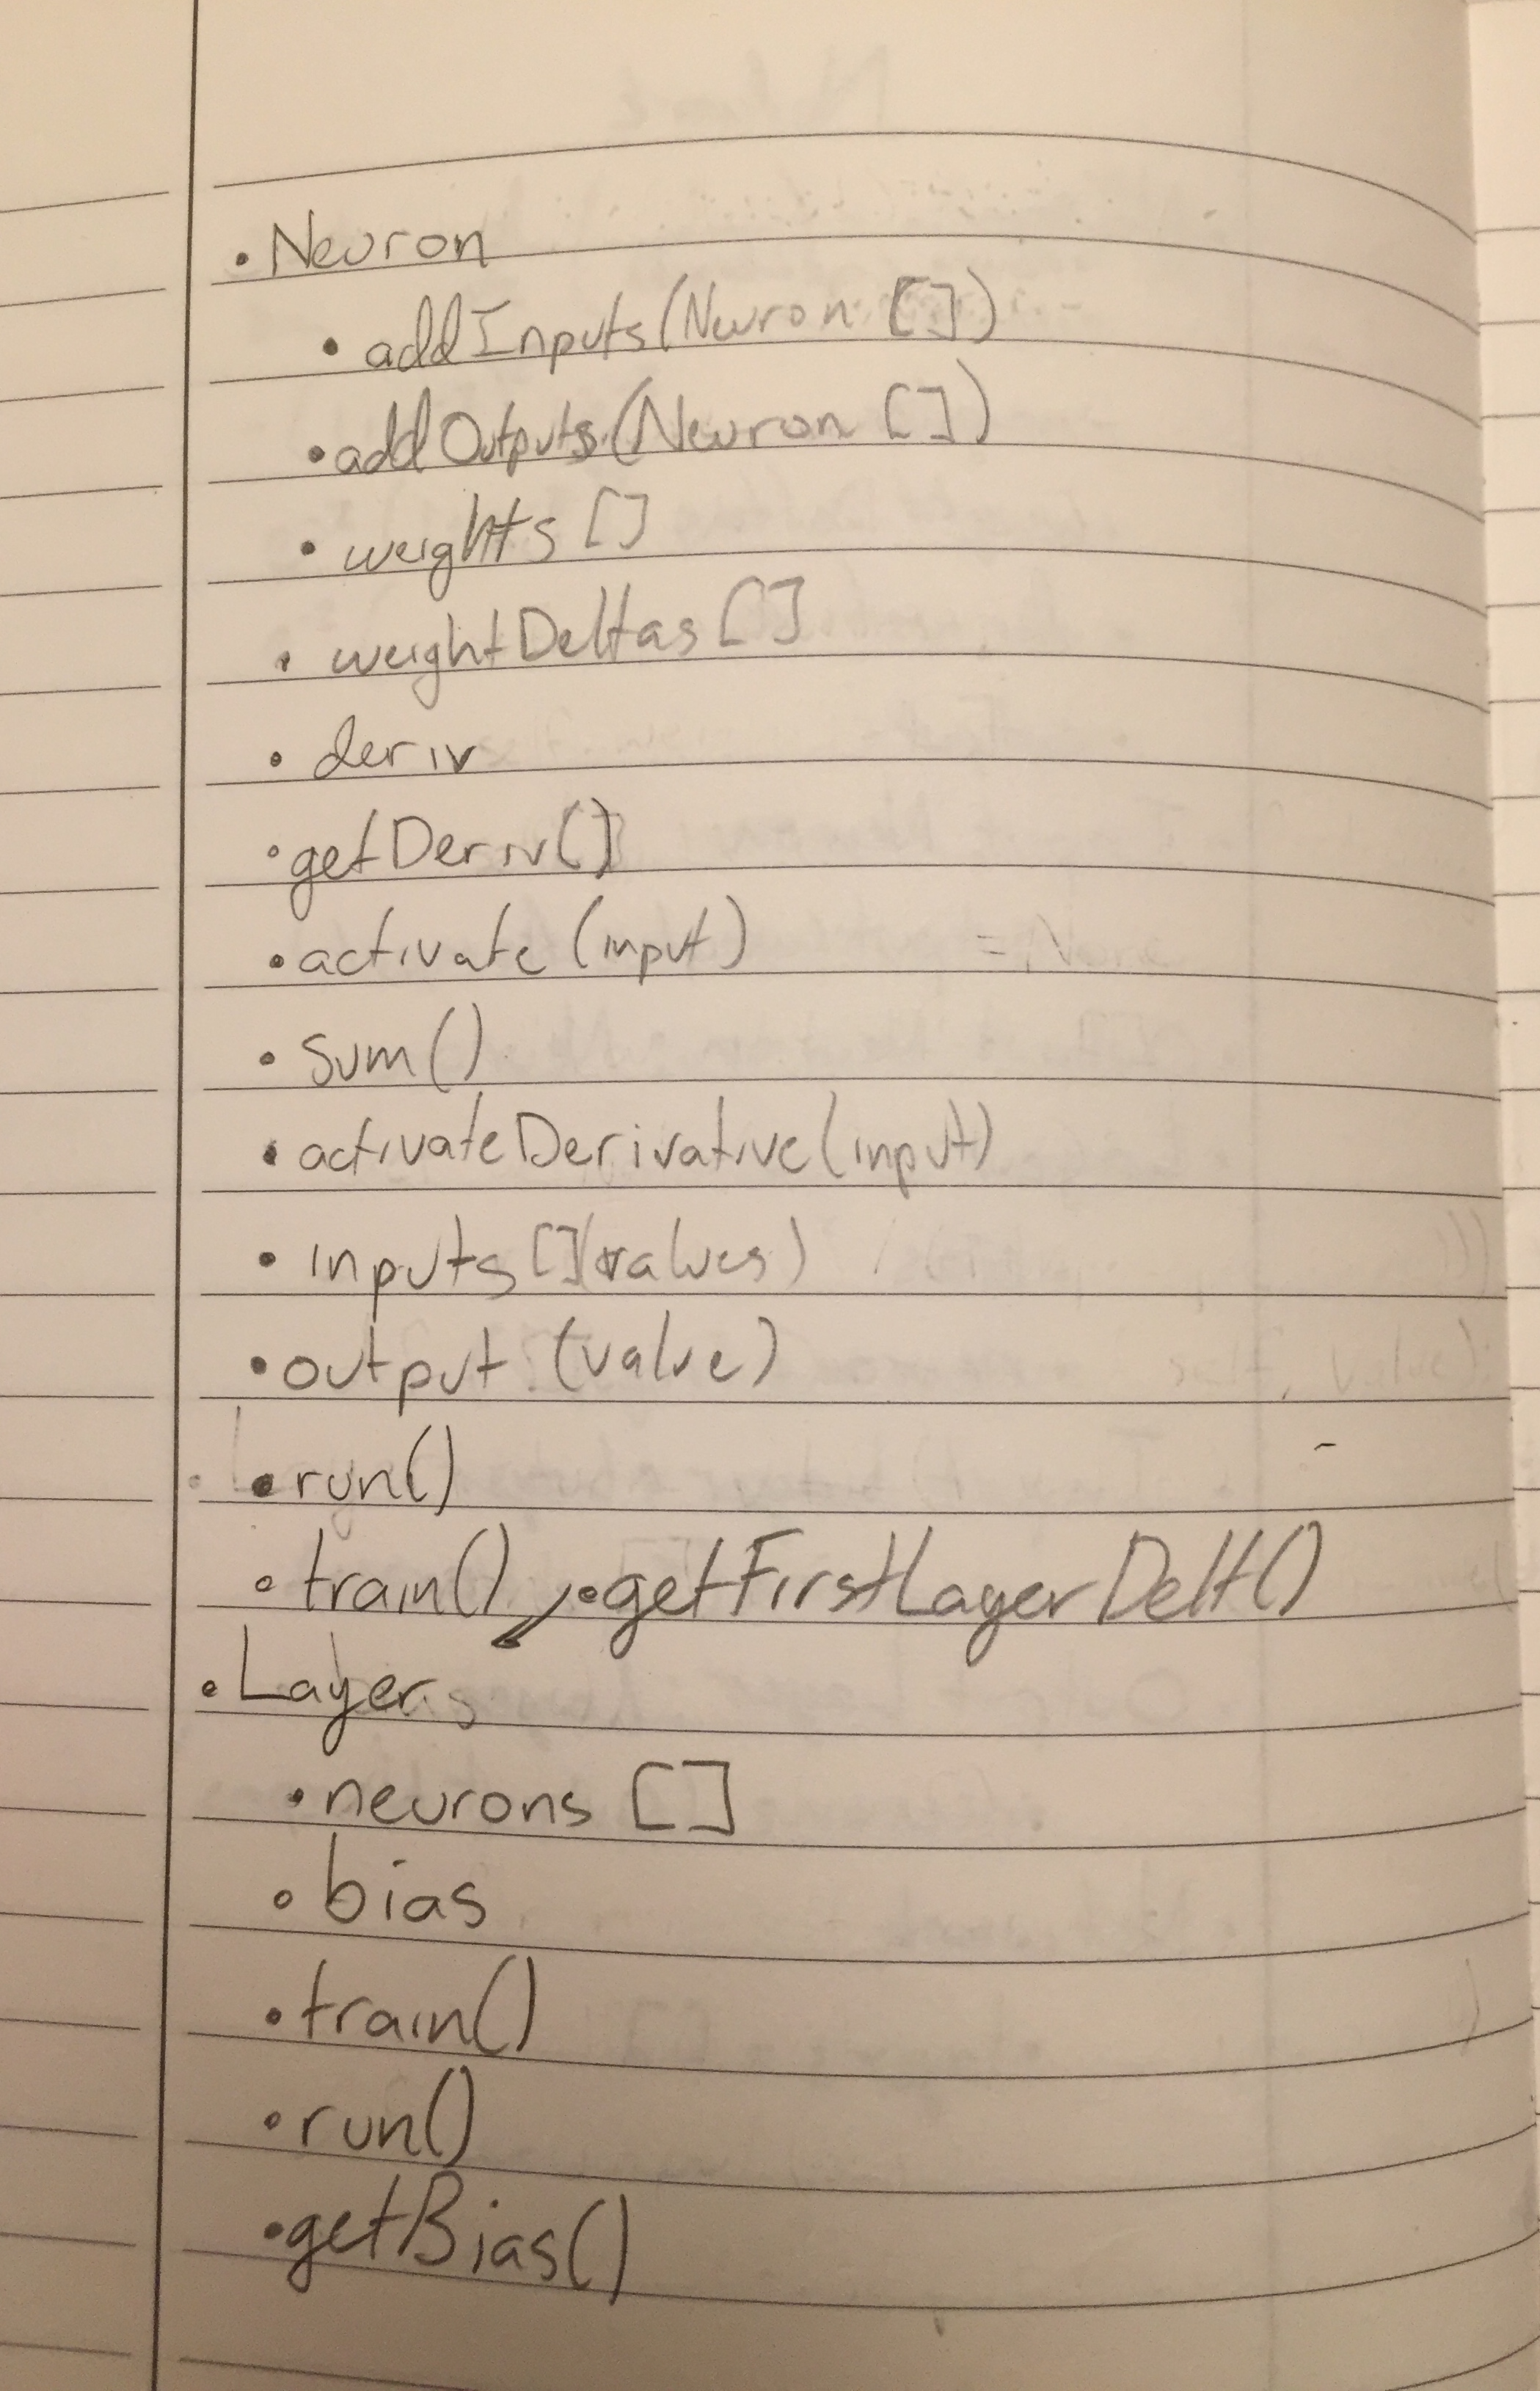 • Neuron
• addInputs(Neuron [])
• addOutputs(Neuron [])
• weights []
• weightDeltas []
• deriv
• getDeriv()
• activate(input)
• sum()
• activateDerivative(input)
• inputs [](values)
• output (value)
• run()
• train() • getFirstLayerDelt()
• Layer
• neurons []
• bias
• train()
• run()
• getBias()